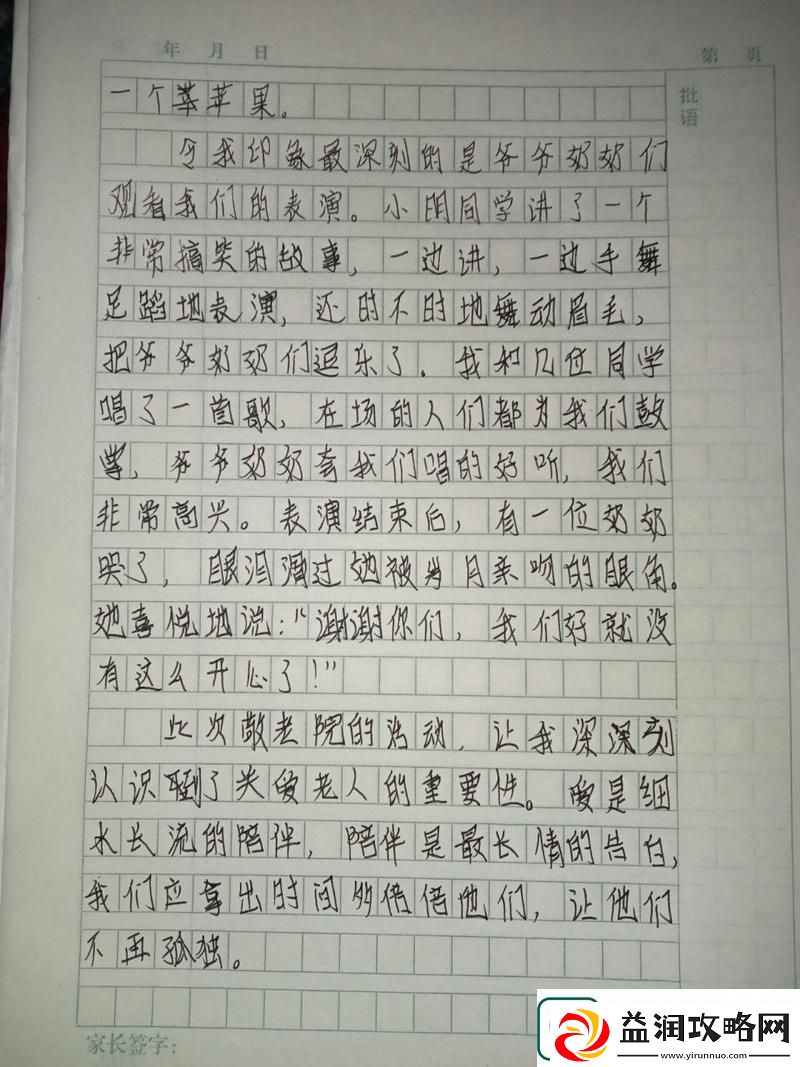 年 月 日
第 页
批语
一个苹苹果。
令我印象最深刻的是爷爷奶奶们
观看我们的表演。小明同学讲了一个
非常搞笑的故事，一边讲，一边手舞
足蹈地表演，还时不时地舞动眉毛，
把爷爷奶奶们逗乐了．我和几位同学
唱了一首歌，在场的人们都为我们鼓
掌，爷爷奶奶夸我们唱的好听，我们
非常高兴。表演结束后，有一位奶奶
哭了，眼泪滑过她被岁月亲吻的眼角。
她喜悦地说：“谢谢你们，我们好就没
有这么开心了！”
此次敬老院的活动，让我深深刻
认识到了关爱老人的重要性。爱是细
水长流的陪伴，陪伴是最长情的告白，
我们应拿出时间多陪陪他们，让他们
不再孤独。
家长签字：
益润攻略网
www.yirunnuo.com